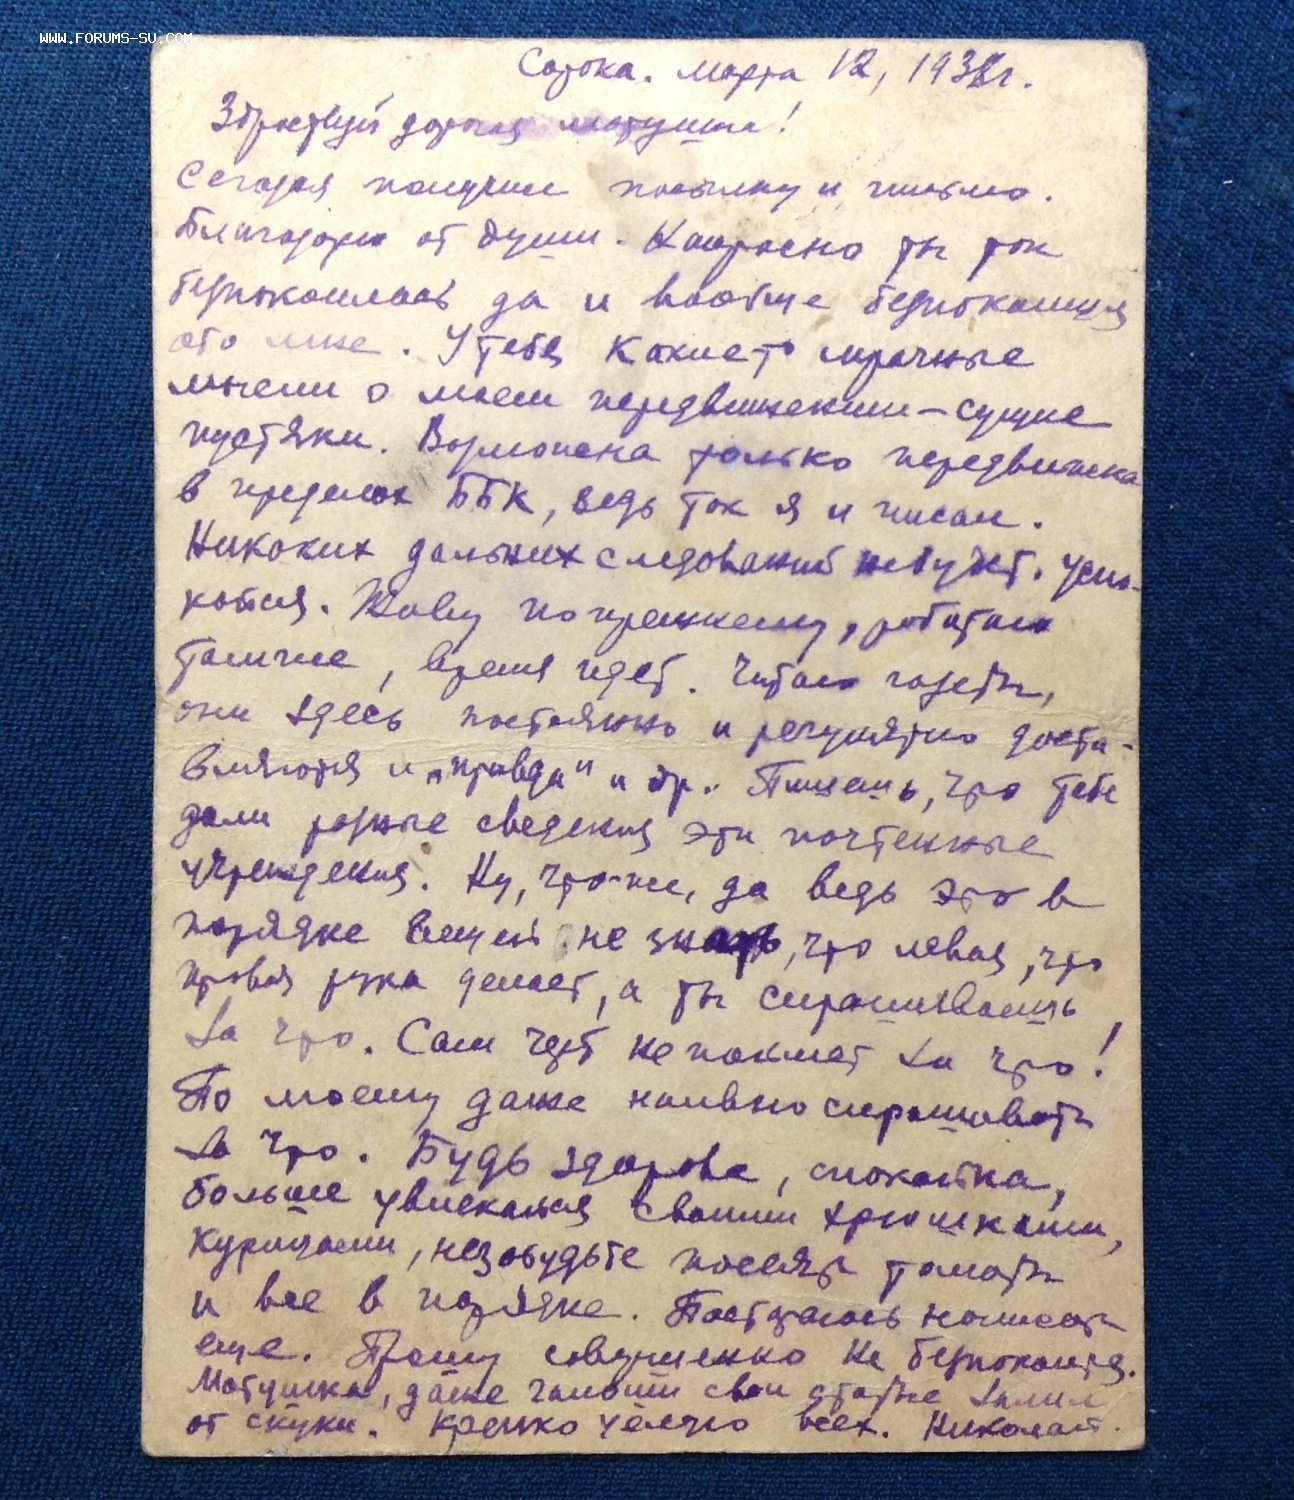 WWW.FORUMS-SU.COM
Сорока. Марта 12, 193 г.
Здраствуй дорогая матушка!
Сегодня получил посылку и письмо.
Благодарю от души. Напрасно ты так
безпокоилась да и вообще безпокоишся
обо мне. У тебя какие-то мрачные
мысли о моем передвижении – сущие
пустяки. Возможна только передвижка
в пределах ББК, ведь так я и писал.
Никаких дальних следований не будет. Успо-
койся. Живу по прежнему, работаю
там же, время идет. Читаю газеты,
они здесь постоянно и регулярно доста-
вляются и „правда" и др. Пишешь, что тебе
дали разные сведения эти почтенные
учреждения. Ну, что-же, да ведь это в
порядке вещей не знать, что левая, что
правая рука делает, а ты спрашиваешь
за что. Сам чорт не поймет за что!
По моему даже наивно спрашивать
за что. Будь здорова, спокойна,
больше увлекайся своими хрюшками,
курицами, незабудьте посеять томаты
и все в порядке. Постараюсь написать
еще. Прошу совершенно не безпокоится.
Матушка, даже свои
от скуки. Крепко целую всех. Николай.